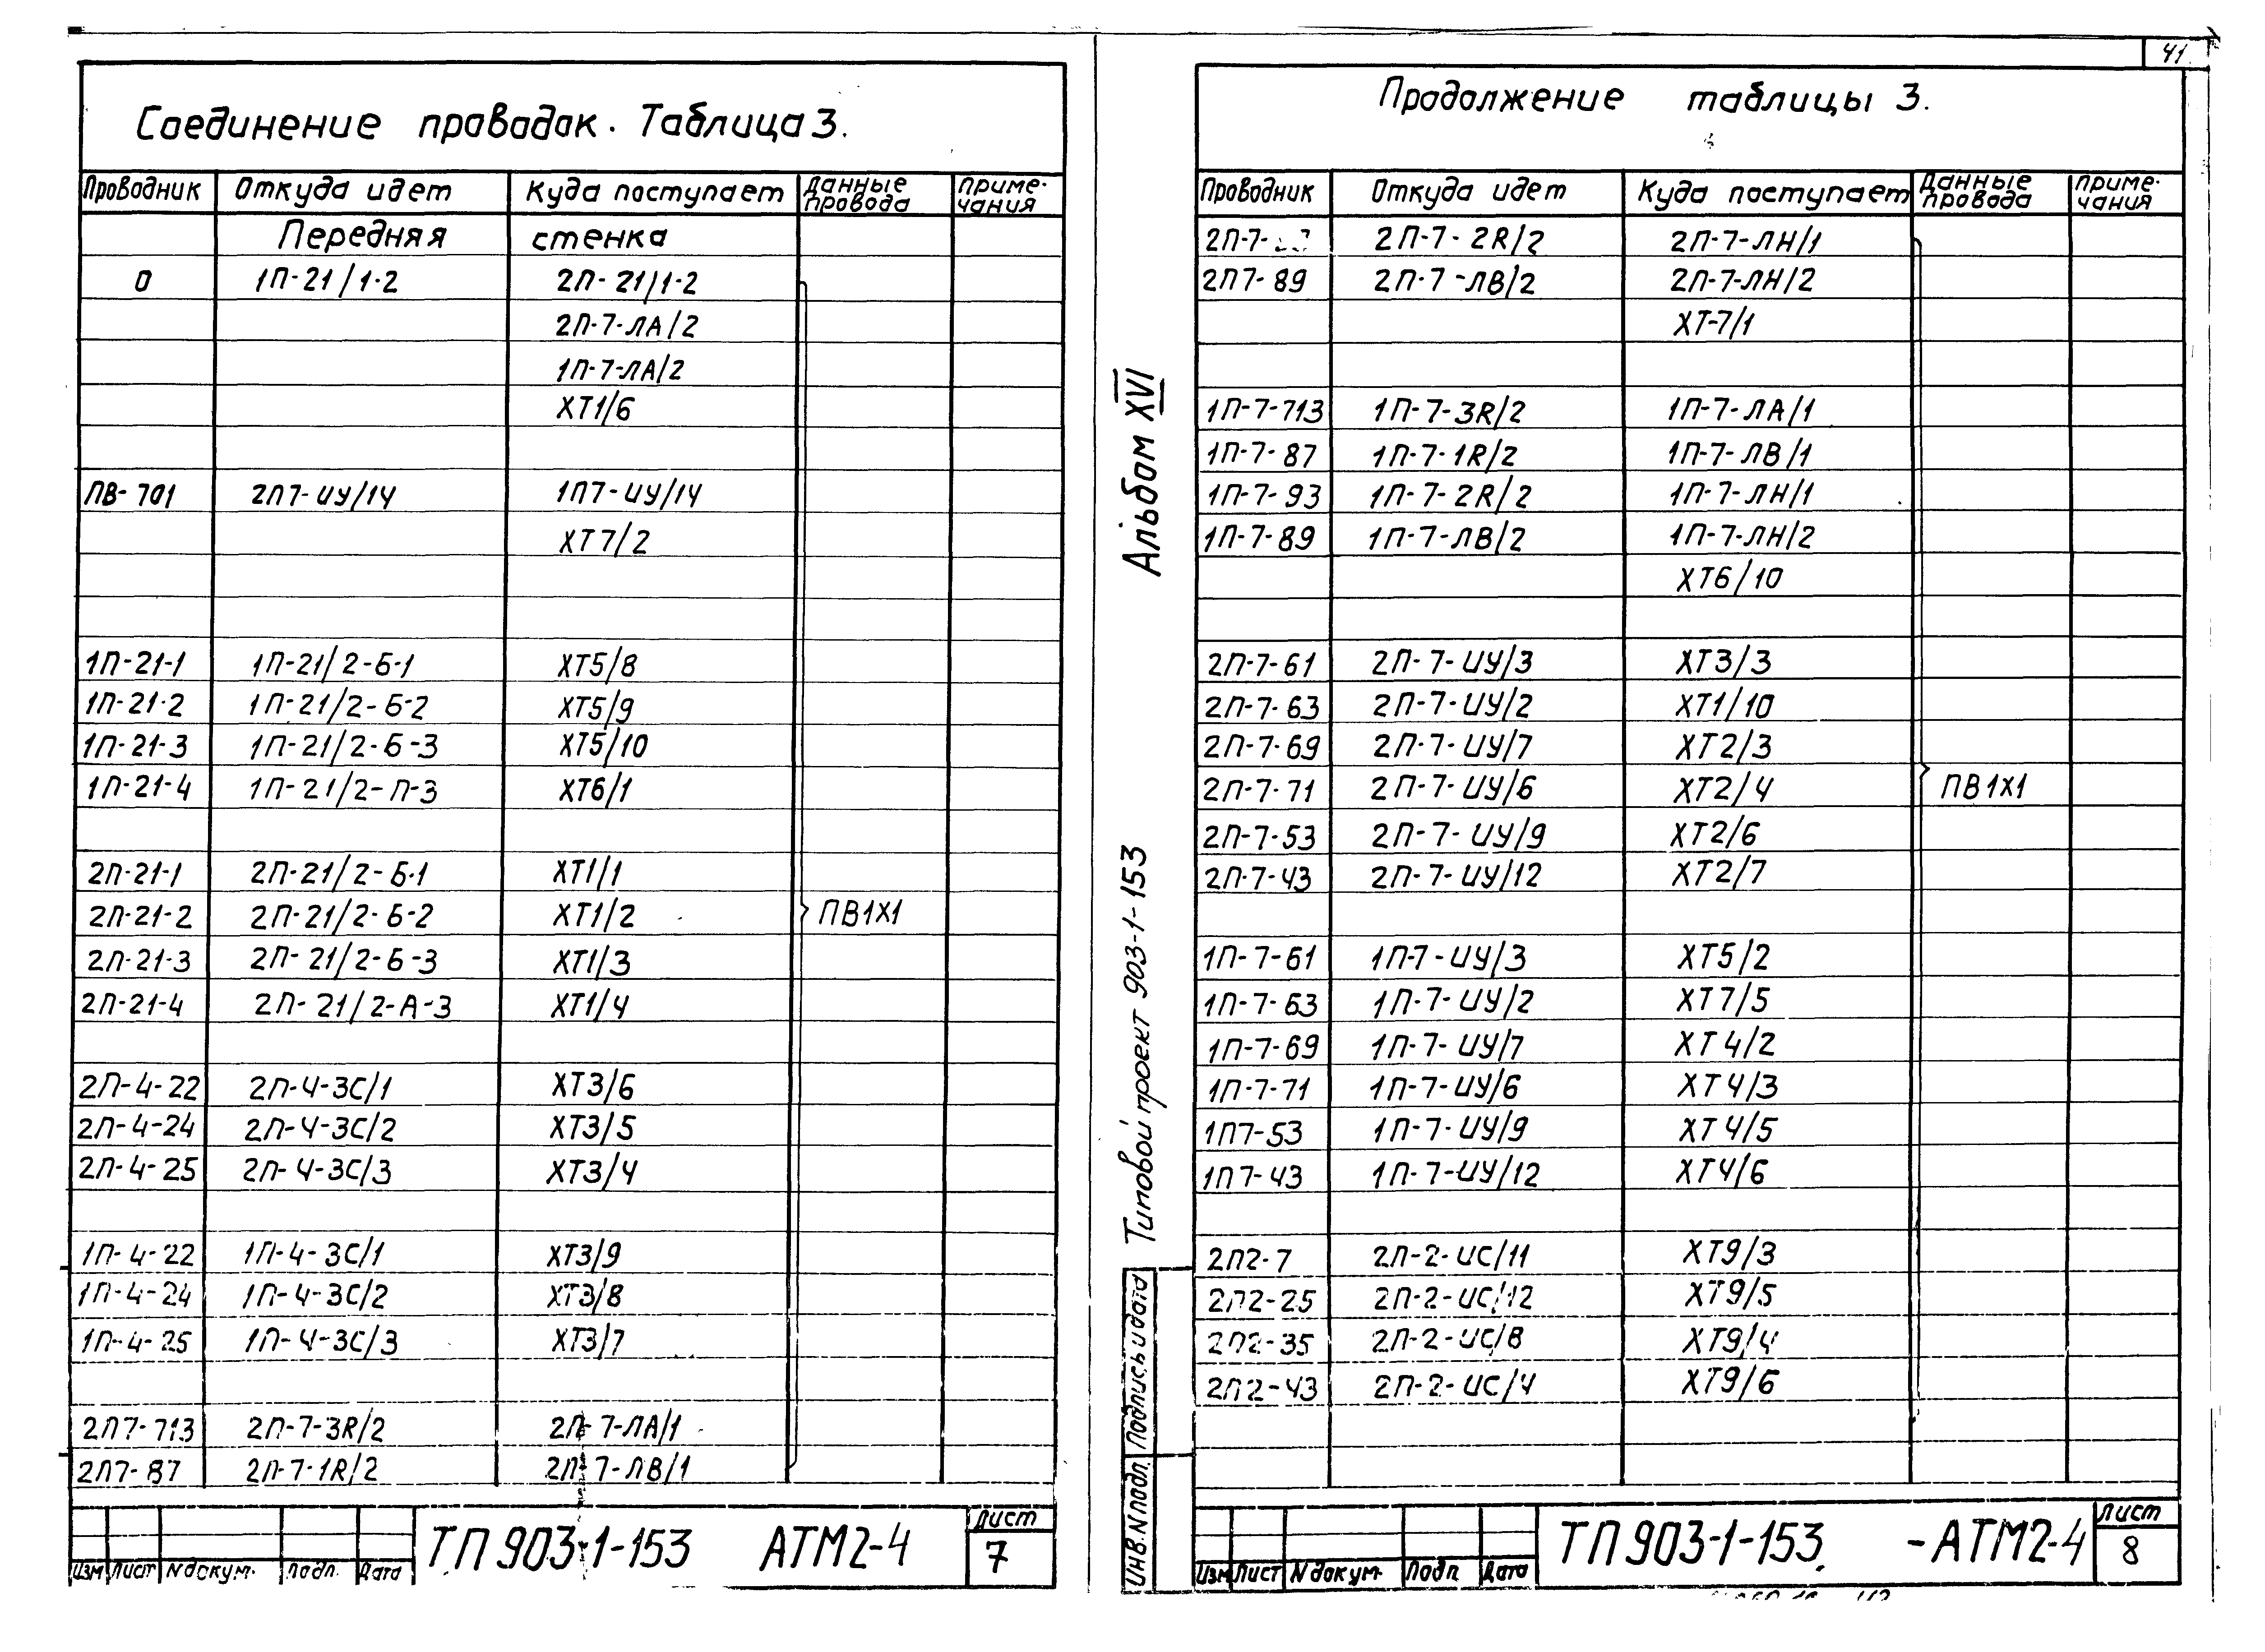 41
Соединение проводок. Таблица 3.
Проводник Откуда идет Куда поступает Данные провода Приме-чания
Передняя стенка
0 1П-21/1-2 2П-21/1-2
2П-7-ЛА/2
1П-7-ЛА/2
ХТ1/6
ПВ-701 2П7-ИУ/14 1П7-ИУ/14
ХТ7/2
1П-21-1 1П-21/2-Б-1 ХТ5/8
1П-21-2 1П-21/2-Б-2 ХТ5/9
1П-21-3 1П-21/2-Б-3 ХТ5/10
1П-21-4 1П-21/2-П-3 ХТ6/1
2П-21-1 2П-21/2-Б-1 ХТ1/1
2П-21-2 2П-21/2-Б-2 ХТ1/2 ПВ1Х1
2П-21-3 2П-21/2-Б-3 ХТ1/3
2П-21-4 2П-21/2-А-3 ХТ1/4
2П-4-22 2П-4-3С/1 ХТ3/6
2П-4-24 2П-4-3С/2 ХТ3/5
2П-4-25 2П-4-3С/3 ХТ3/4
1П-4-22 1П-4-3С/1 ХТ3/9
1П-4-24 1П-4-3С/2 ХТ3/8
1П-4-25 1П-4-3С/3 ХТ3/7
2П7-713 2П-7-3R/2 2П-7-ЛА/1
2П7-87 2П-7-1R/2 2П-7-ЛВ/1
Изм Лист N докум. Подп. Дата
ТП 903-1-153 АТМ2-4
Лист
7
Альбом XVI
Типовой проект 903-1-153
Подпись и дата
Инв. N подл.
Продолжение таблицы 3.
Проводник Откуда идет Куда поступает Данные провода Приме-чания
2П-7- 2П-7-2R/2 2П-7-ЛН/1
2П7-89 2П-7-ЛВ/2 2П-7-ЛН/2
ХТ-7/1
1П-7-713 1П-7-3R/2 1П-7-ЛА/1
1П-7-87 1П-7-1R/2 1П-7-ЛВ/1
1П-7-93 1П-7-2R/2 1П-7-ЛН/1
1П-7-89 1П-7-ЛВ/2 1П-7-ЛН/2
ХТ6/10
2П-7-61 2П-7-ИУ/3 ХТ3/3
2П-7-63 2П-7-ИУ/2 ХТ1/10
2П-7-69 2П-7-ИУ/7 ХТ2/3
2П-7-71 2П-7-ИУ/6 ХТ2/4 ПВ1Х1
2П-7-53 2П-7-ИУ/9 ХТ2/6
2П-7-43 2П-7-ИУ/12 ХТ2/7
1П-7-61 1П-7-ИУ/3 ХТ5/2
1П-7-63 1П-7-ИУ/2 ХТ7/5
1П-7-69 1П-7-ИУ/7 ХТ4/2
1П-7-71 1П-7-ИУ/6 ХТ4/3
1П7-53 1П-7-ИУ/9 ХТ4/5
1П7-43 1П-7-ИУ/12 ХТ4/6
2П2-7 2П-2-ИС/11 ХТ9/3
2П2-25 2П-2-ИС/12 ХТ9/5
2П2-35 2П-2-ИС/8 ХТ9/4
2П2-43 2П-2-ИС/4 ХТ9/6
Изм Лист N докум. Подп Дата
ТП 903-1-153 -АТМ2-4
Лист
8